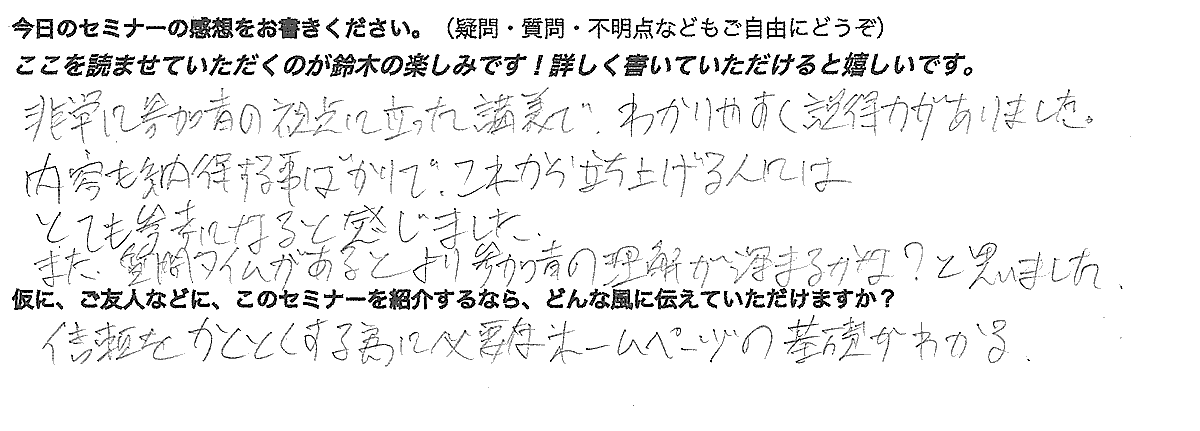 今日のセミナーの感想をお書きください。（疑問・質問・不明点などもご自由にどうぞ）
ここを読ませていただくのが鈴木の楽しみです！詳しく書いていただけると嬉しいです。
非常に参加者の視点に立った講義で、わかりやすく説得力がありました。
内容も納得する事ばかりで、これから立ち上げる人には
とても参考になると感じました。
また、質問タイムがあるとより参加者の理解が深まるかな？と思いました。
仮に、ご友人などに、このセミナーを紹介するなら、どんな風に伝えていただけますか？
信頼をかくとくする為に必要なホームページの基礎がわかる。